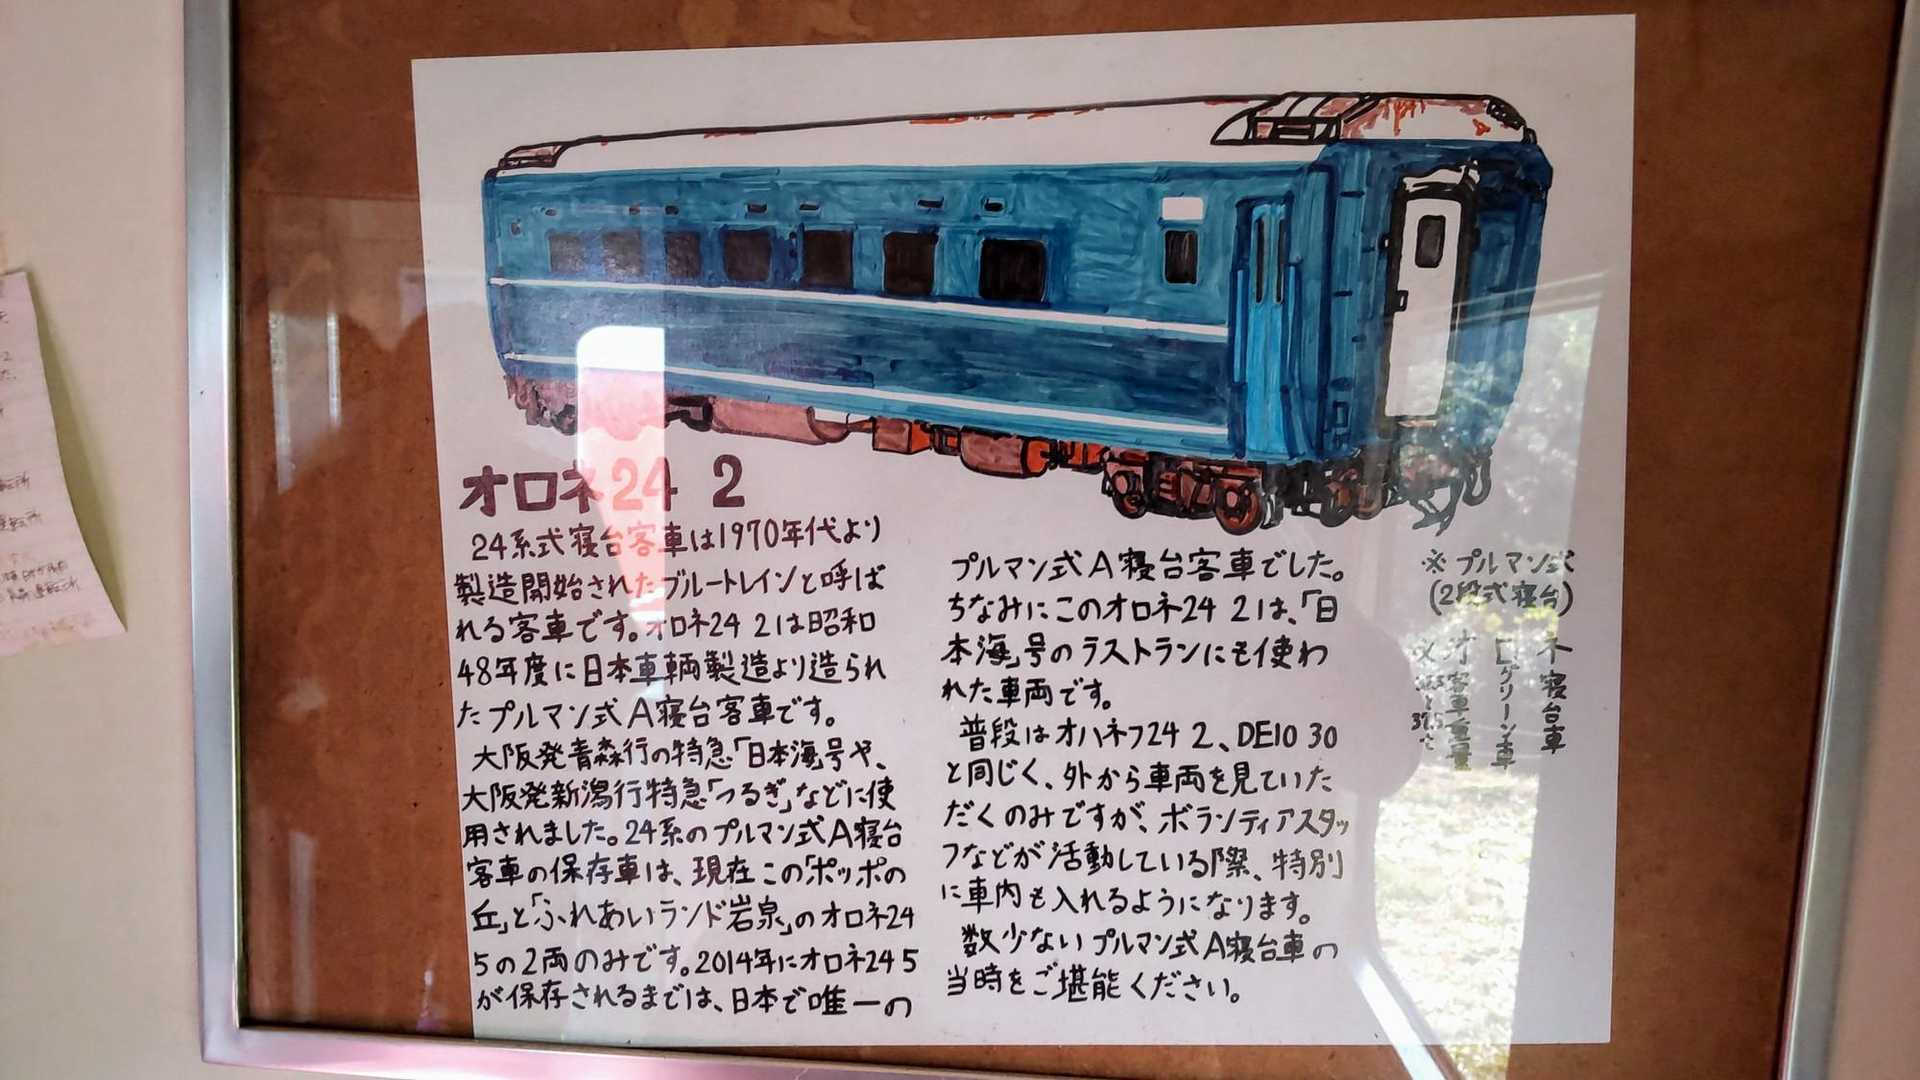 オロネ24 2
24系式寝台客車は1970年代より
製造開始されたブルートレインと呼ば
れる客車です。オロネ24 2は昭和
48年度に日本車輌製造より造られ
たプルマン式A寝台客車です。
大阪発青森行の特急「日本海」号や、
大阪発新潟行特急「つるぎ」などに使
用されました。24系のプルマン式A寝台
客車の保存車は、現在この「ポッポの
丘」と「ふれあいランド岩泉」のオロネ24
5の2両のみです。2014年にオロネ24 5
が保存されるまでは、日本で唯一の
プルマン式A寝台客車でした。
ちなみにこのオロネ24 2は、「日
本海」号のラストランにも使わ
れた車両です。
普段はオハネフ24 2、DE10 30
と同じく、外から車両を見ていた
だくのみですが、ボランティアスタッ
フなどが活動している際、特別
に車内も入れるようになります。
数少ないプルマン式A寝台車の
当時をご堪能ください。
※プルマン式
(2段式寝台)
ネ 寝台車
ロ グリーン車
オ 客車重量